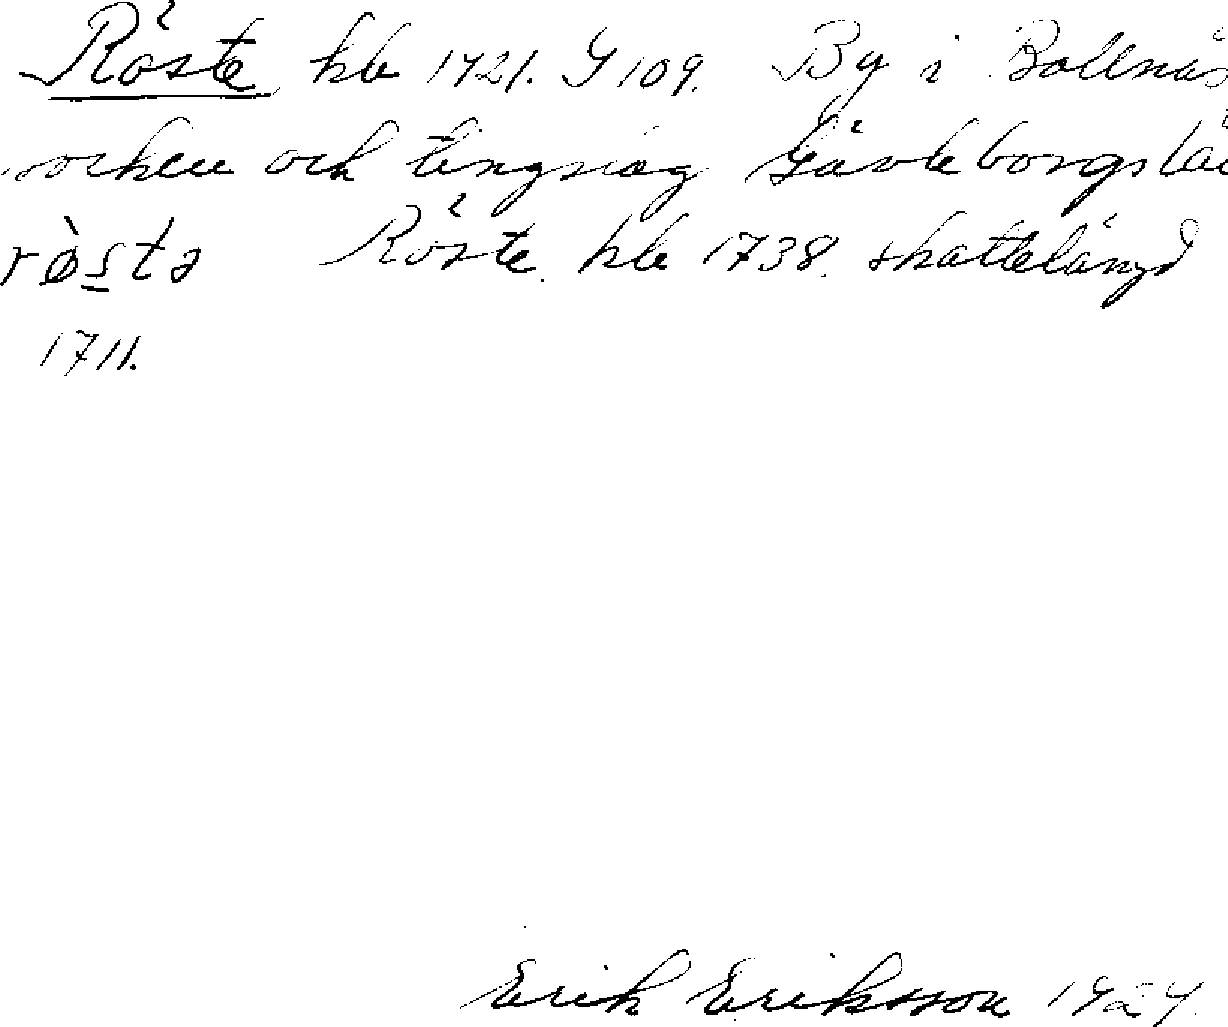 Röste hb 1721. G 109. By i Bollnäs
socken och tingslag Gävleborgs lä
røsta Röste. hb 1738. skattelängd
1711.
Erik Eriksson 1924.